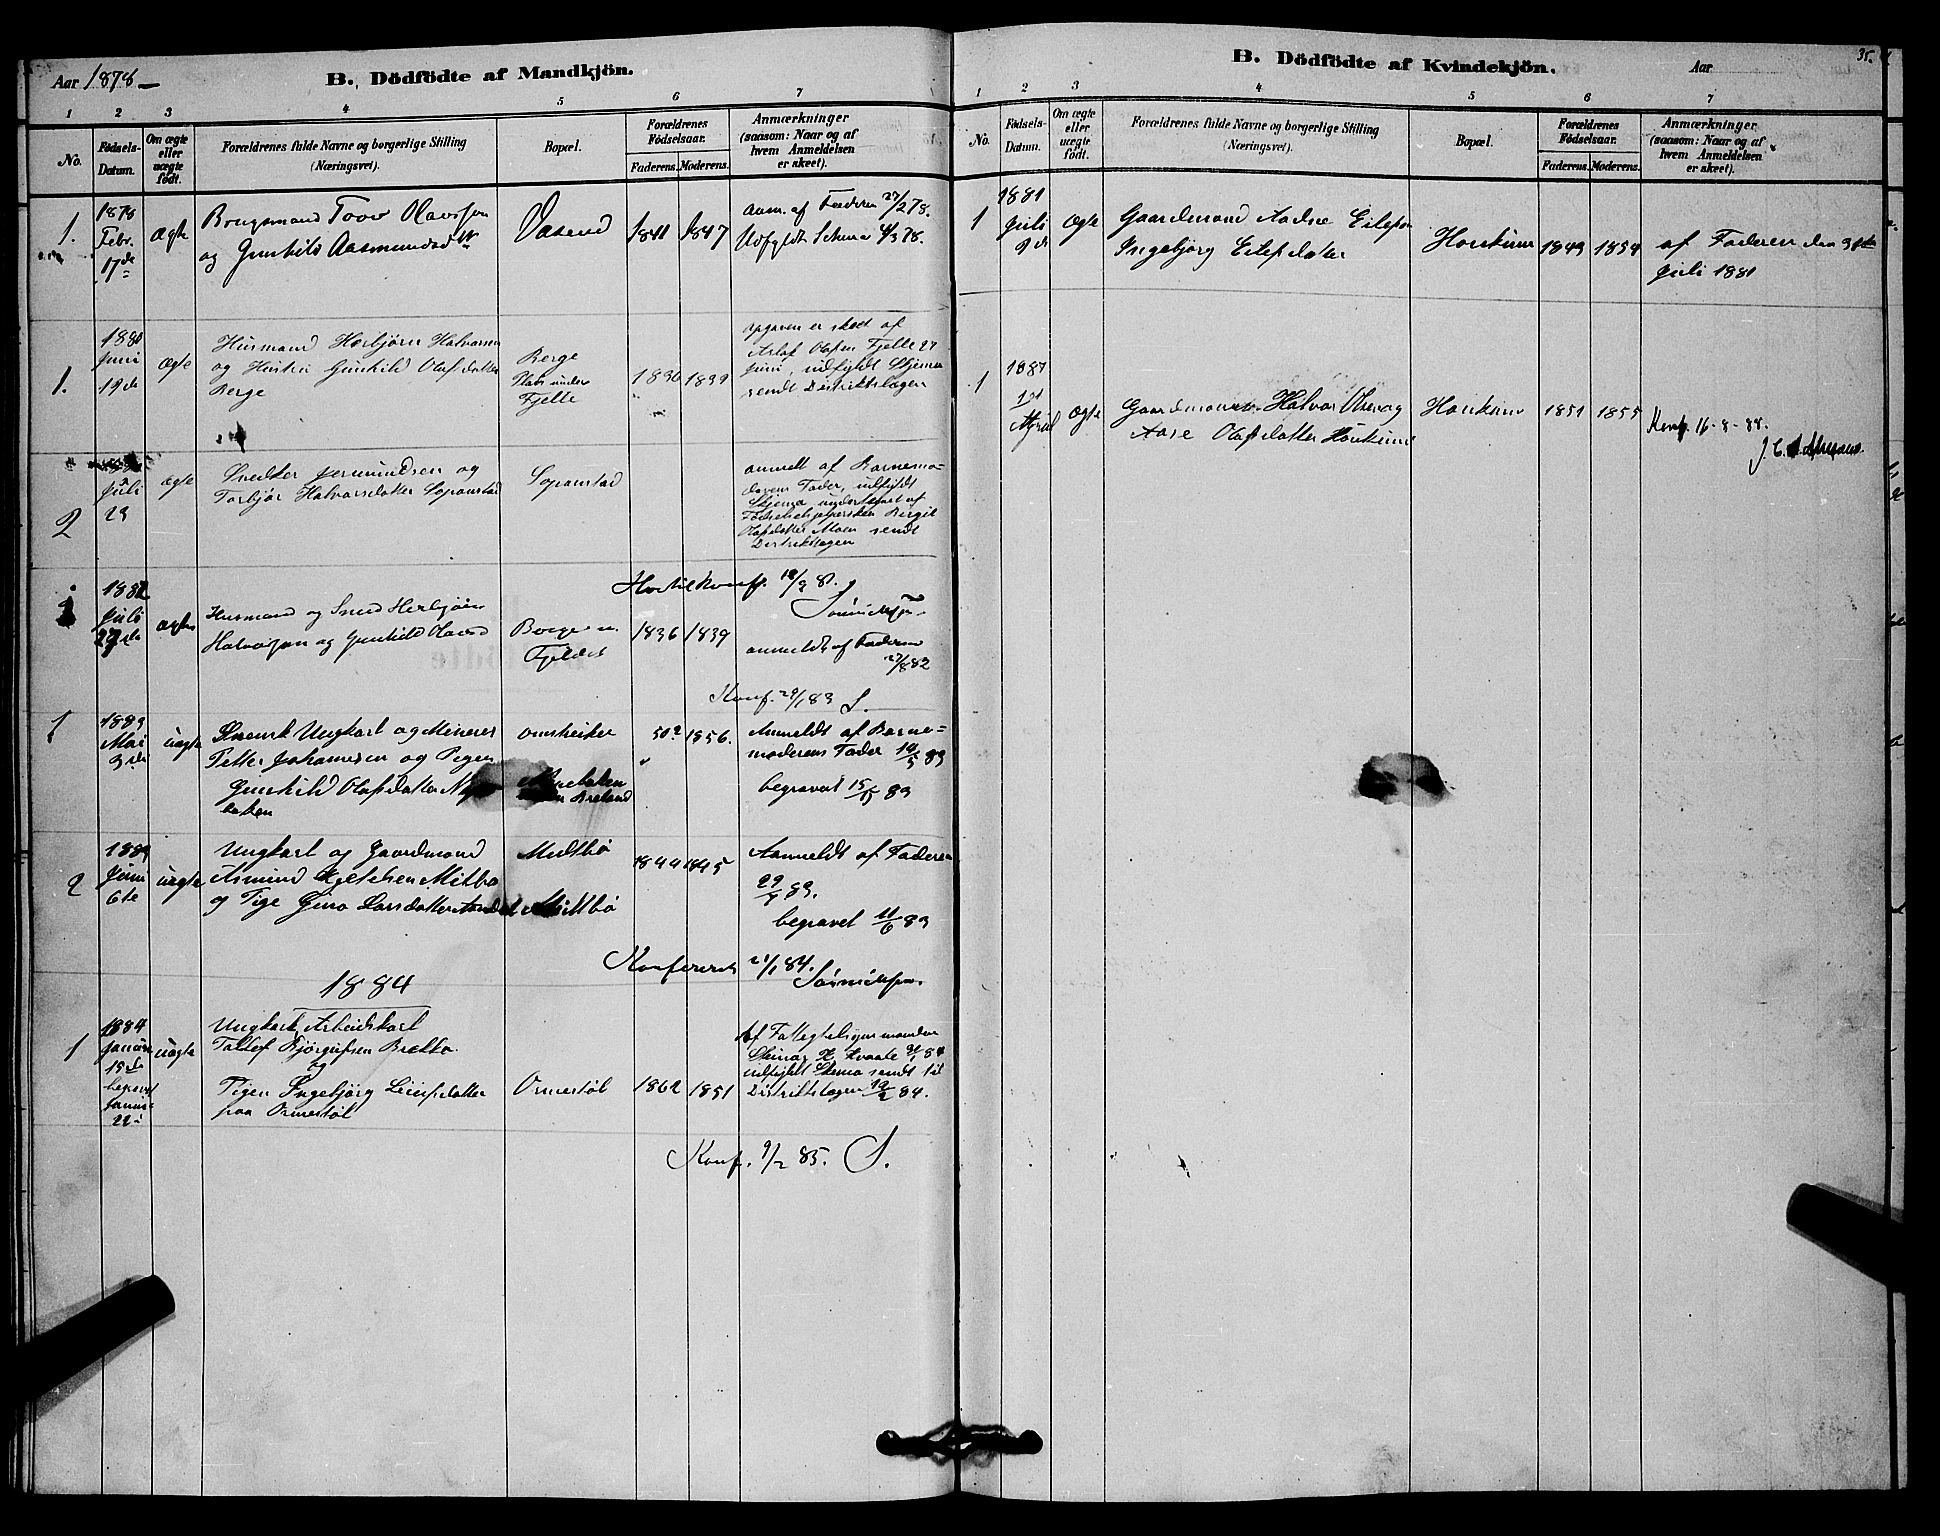 Aar 1878 —
B. Dödfödte af Mandkjön.
1 2 3 4 5 6 7
No.
Födsels-Datum.
Om ægte eller uægte födt.
Forældrenes fulde Navne og borgerlige Stilling (Næringsvei).
Bopæl.
Forældrenes Födselsaar.
Faderens. Moderens.
Anmærkninger (saasom: Naar og af hvem Anmeldelsen er skeet).
1. 1878 Febr. 17de ægte
Brugsmand Tov Olavssen
og Gunhild Aasmundsd
Vasend 1841 1847
Anm. af Faderen 27/2 78.
Udfyldt Schema 4/3 78.
1. 1880 Juni 19de ægte
Husmand Herbjörn Halvorsen
og Hustru Gunhild Olafsdatter
Berge
Berge
Plads under
Fjelle
1836 1839
opgaven er skeet af
Aslaf Olafsen Fjelle 27
Juni, udfyldt Skjema
sendt Distriktslægen
2 Juli 23 ægte
Snedker Jermundsen og
Torbjör Halvorsdatter Sopanstad
Sopanstad
anmeldt af Barnemo-
derens Fader, udfyldt
Skjema undertegnet af
Födselshjælpersken Birgit
Olafsdatter Moen sendt
Distriktlægen
Hertil konf. 18/3 81.
1882 Juli 27de ægte
Husmand og Smed Herbjörn
Halvorsen og Gunhild Olavsd
Berge u.
Fjeldet
1836 1839
anmeldt af Faderen
27/8 82
Konf. 29/1 83 S.
1 1883 Mai 3die uægte
Svensk Ungkarl og Minerer
Petter Johannesen og Pigen
Gunhild Olafsdatter My
bakken
omstreifer
Myrebakken
Breland
50? 1856.
Anmeldt af Barne-
moderens Fader 10/5 83
begravet 15/5 83
2 1883 Juni 6te uægte
Ungkarl og Gaardmand
Asmund Kjetelsen Mitbø
og Pige Gina Larsdatter
Midtbö
Midtbö
1844 1845
Anmeldt af Faderen
29/8 83.
begravet 11/6 83
Konfereret 21/1 84.
1884
1 1884 Januar 15de begravet Januar 22. uægte
Ungkarl, Arbeidskarl
Tallef Bjørgulfsen Brekke
og
Pigen Ingebjörg Leiufsdatter
paa Ormestöl
Ormestöl 1862 1851
Af Fattigtilsynsmanden
Steinar K. Kvaale 31/1 84
udfyldt Skema sendt til
Distriktslægen 19/2 84.
Konf. 9/2 85. S.
B. Dödfödte af Kvindekjön.
Aar
35.
1 2 3 4 5 6 7
No.
Födsels-Datum.
Om ægte eller uægte födt.
Forældrenes fulde Navne og borgerlige Stilling (Næringsvei).
Bopæl.
Forældrenes Födselsaar.
Faderens. Moderens.
Anmærkninger (saasom: Naar og af hvem Anmeldelsen er skeet).
1 1881 Juli 9de Ægte
Gaardmand Aadne Eilefsen
Ingebjörg Eilefsdatter
Houkum 1849 1854
af Faderen den 31te
Juli 1881
1 1887 1ste April Ægte
Gaardmand Halvor Olsen og
Aase Olafsdatter Houkum
Houkum 1851 1855
Konf. 16-8-88.